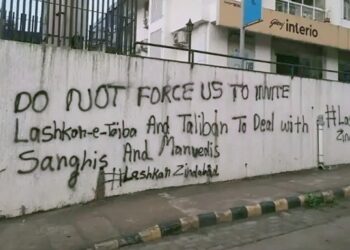 Godrej interio
DO NOT FORCE US TO INVITE
Lashkar-e-Taiba And Taliban To Deal with
Sanghis And Manvedis
#Lashkar Zindabad
#Lash
Zind